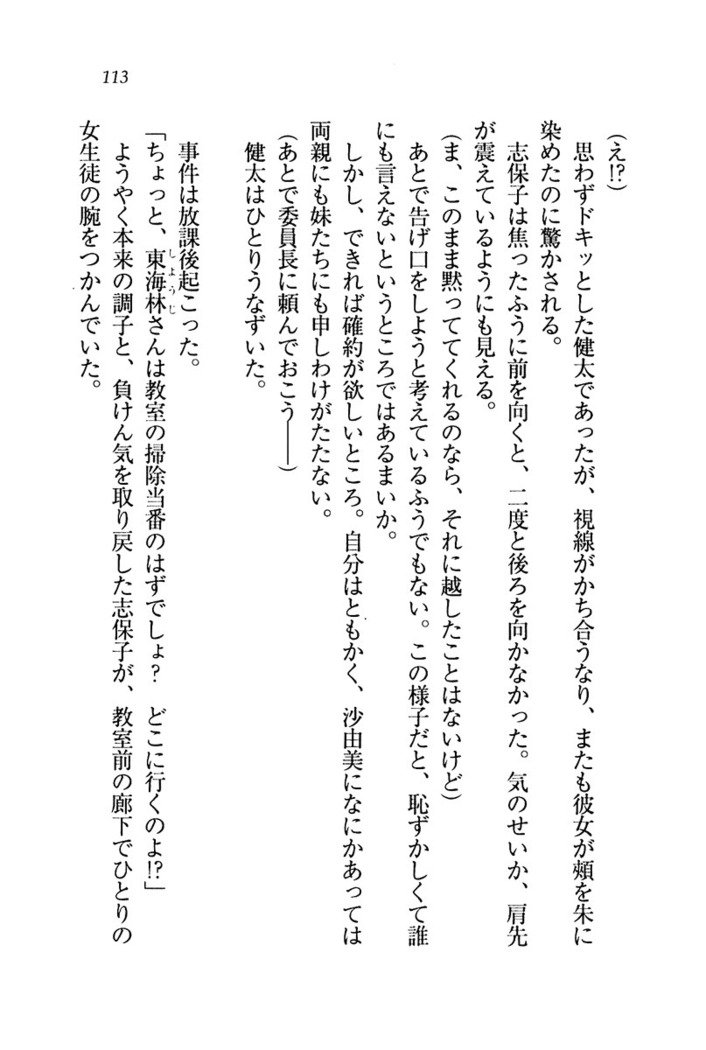 113
(え!?)
思わずドキッとした健太であったが、視線がかち合うなり、またも彼女が頰を朱に
染めたのに驚かされる。
志保子は焦ったふうに前を向くと、二度と後ろを向かなかった。気のせいか、肩先
が震えているようにも見える。
(ま、このまま黙っててくれるのなら、それに越したことはないけど)
あとで告げ口をしようと考えているふうでもない。この様子だと、恥ずかしくて誰
にも言えないというところではあるまいか。
しかし、できれば確約が欲しいところ。自分はともかく、沙由美になにかあっては
両親にも妹たちにも申しわけがたたない。
(あとで委員長に頼んでおこう――)
健太はひとりうなずいた。
事件は放課後起こった。
「ちょっと、東海林さんは教室の掃除当番のはずでしょ? どこに行くのよ!?」
しようじ
ようやく本来の調子と、負けん気を取り戻した志保子が、教室前の廊下でひとりの
女生徒の腕をつかんでいた。